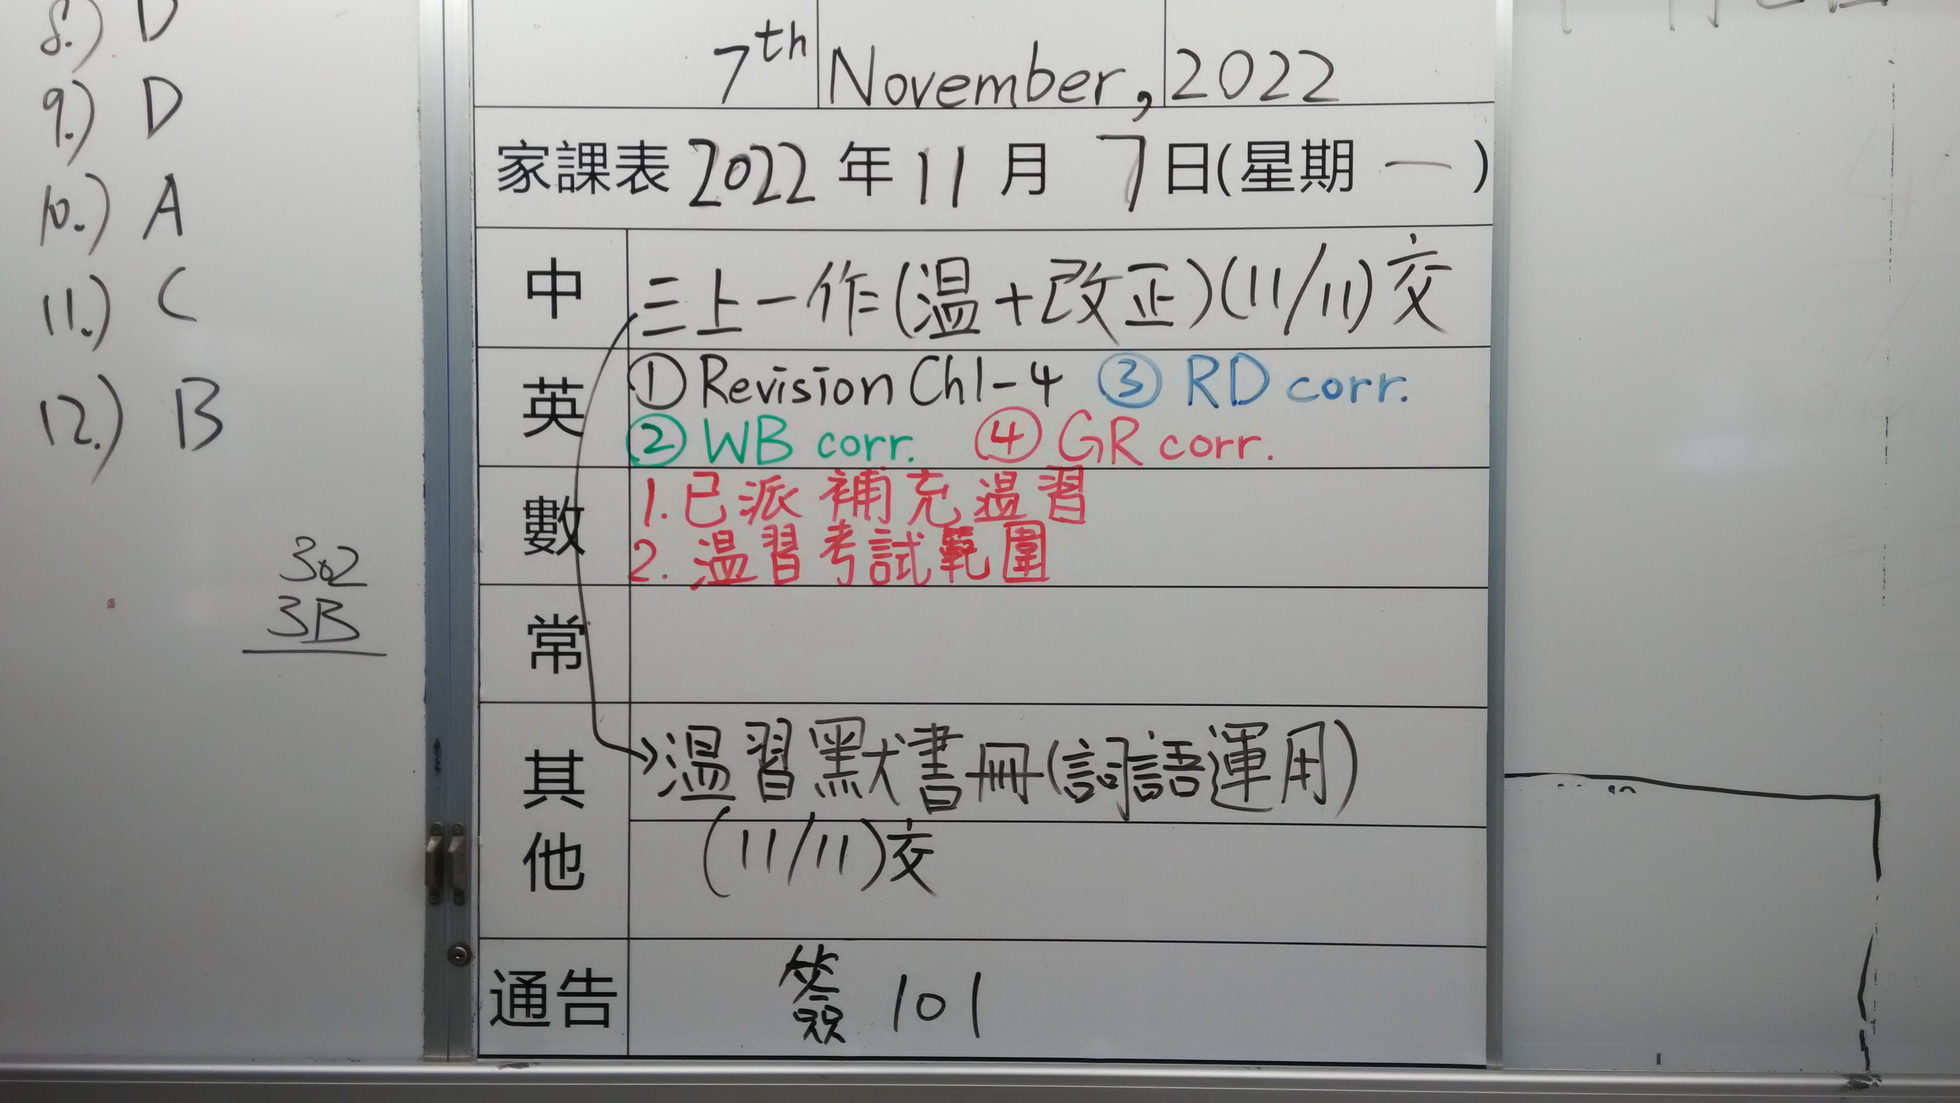 8.) D
9.) D
10.) A
11.) C
12.) B
302
3B
7th November, 2022
家課表 2022 年 11 月 7 日(星期 一 )
中 三上一作(温+改正)(11/11)交
英 ① Revision Ch1-4 ③ RD corr.
② WB corr. ④ GR corr.
數 1. 已派補充温習
2. 温習考試範圍
常
其他 温習默書冊(詞語運用)
(11/11)交
通告 簽 101